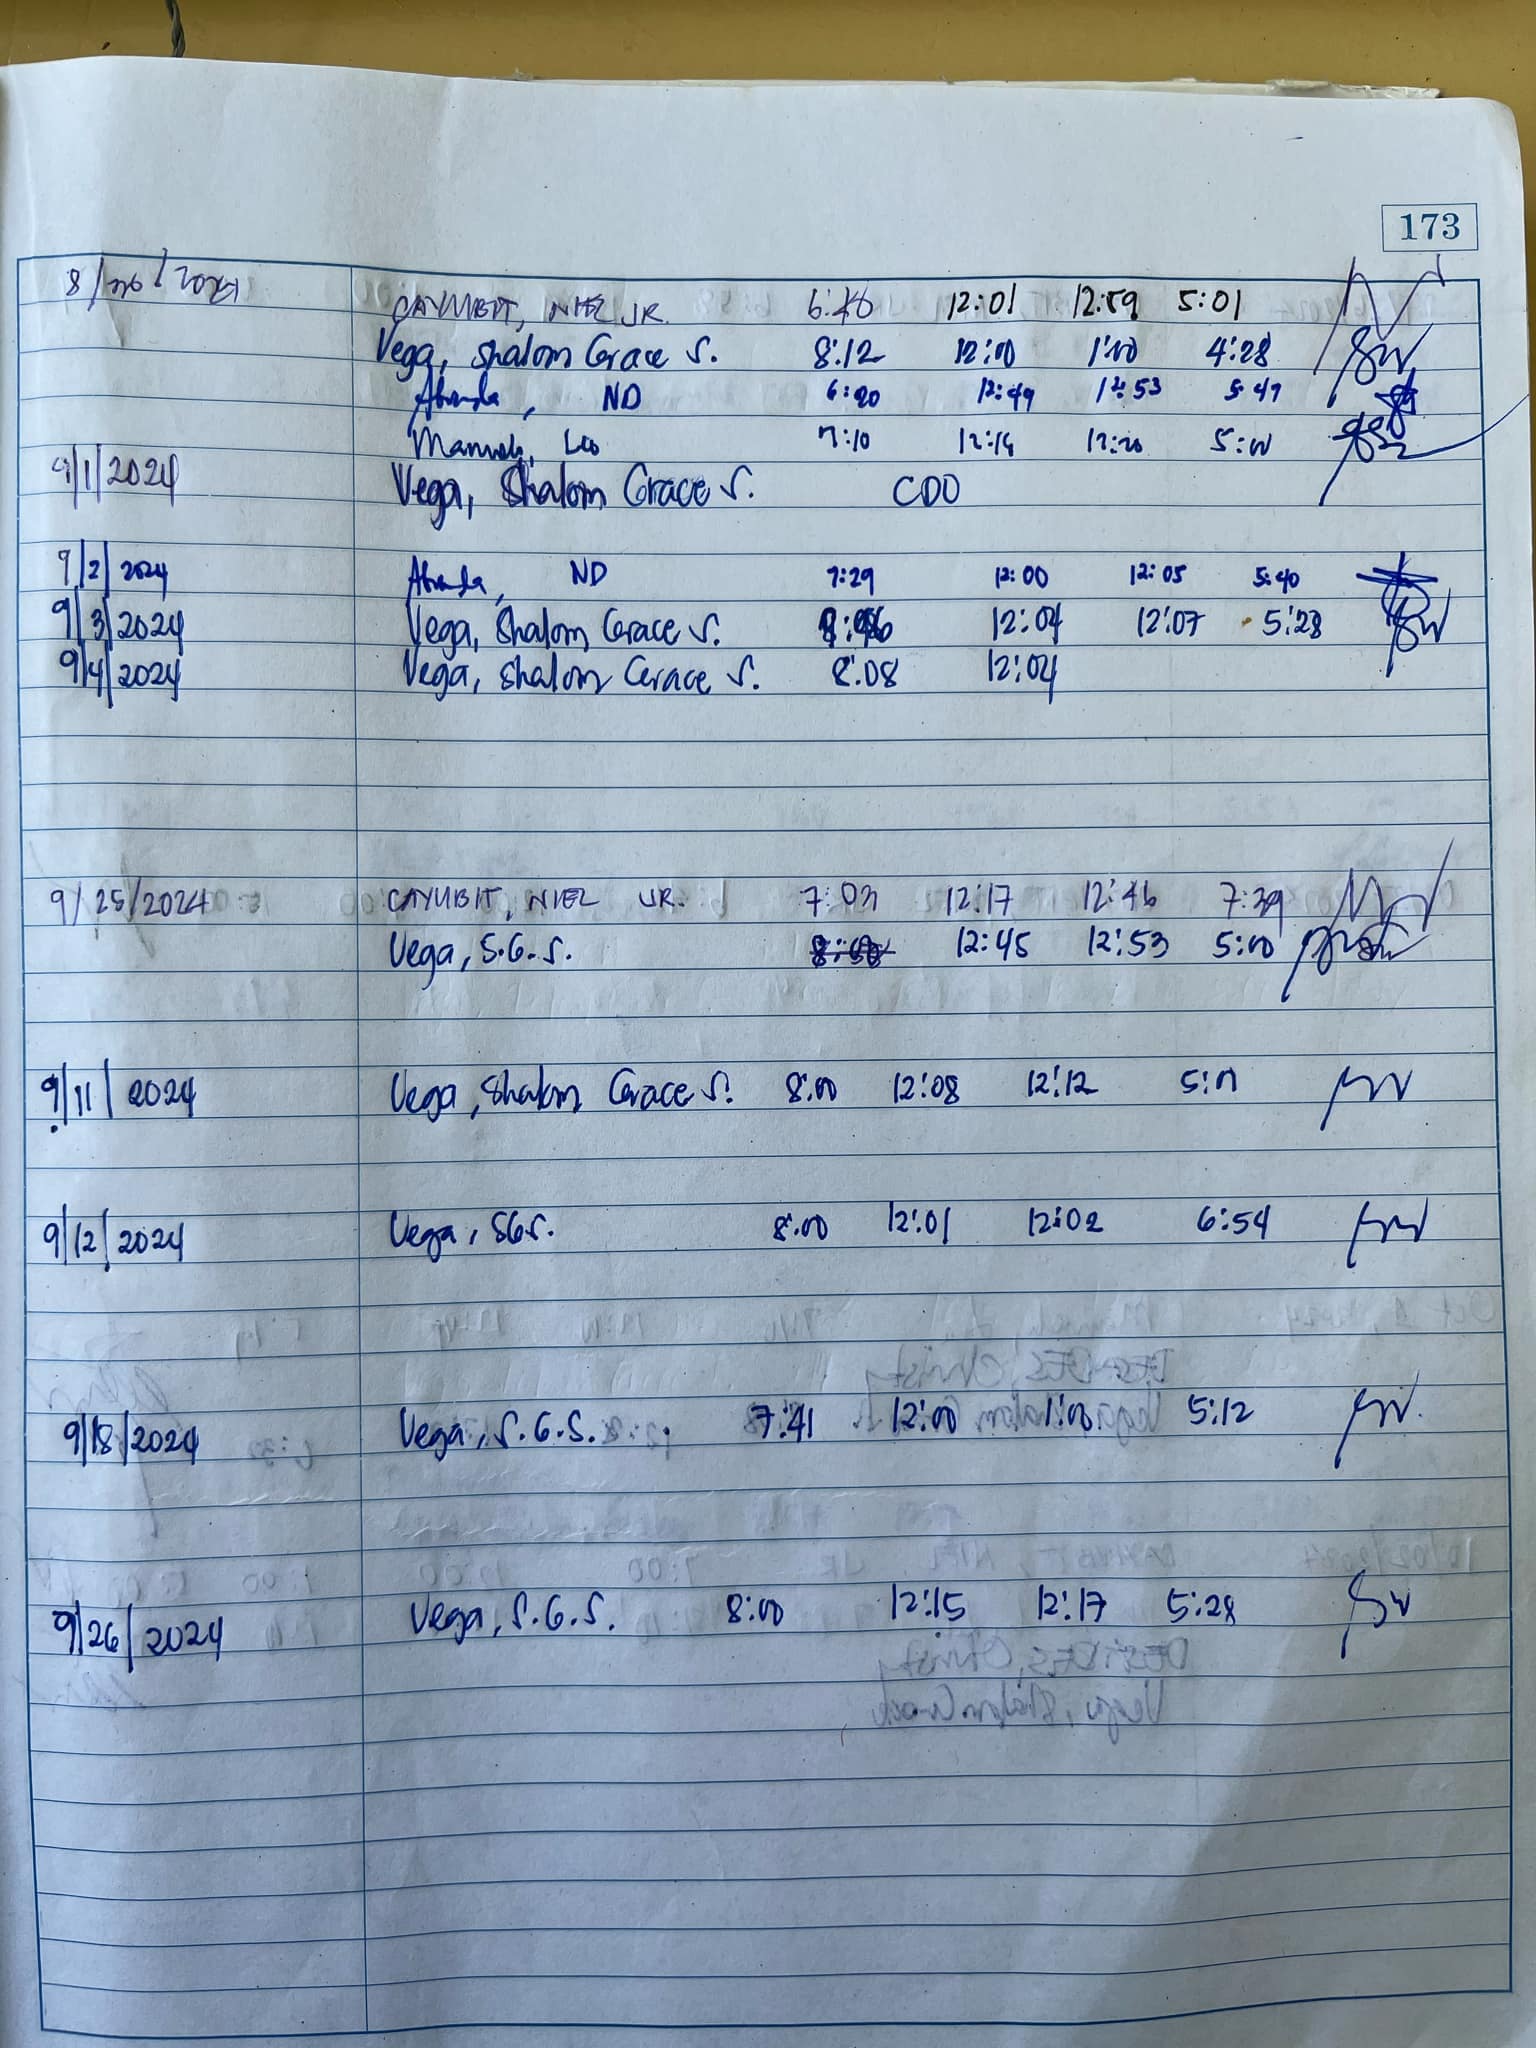 173
8/26/2024 CAYUBIT, NIEL JR. 12:01 12:59 5:01
Vega, Shalom Grace S. 8:12 12:00 1:00 4:28
ND 6:20 12:49 12:53 5:47
Leo 7:10 5:00
9/1/2024 Vega, Shalom Grace S. CDO
9/2/2024 ND 7:29 12:00 12:05 5:40
9/3/2024 Vega, Shalom Grace S. 12:04 12:07 5:28
9/4/2024 Vega, Shalom Grace S. 8:08 12:04
9/25/2024 CAYUBIT, NIEL JR. 7:03 12:17 12:46 7:39
Vega, S.G.S. 12:45 12:53 5:00
9/11/2024 Vega, Shalom Grace S. 8:00 12:08 12:12
9/12/2024 Vega, SGS. 8:00 12:01 12:02 6:54
9/18/2024 Vega, S.G.S. 7:41 12:00 1:00 5:12
9/26/2024 Vega, S.G.S. 8:00 12:15 12:17 5:28